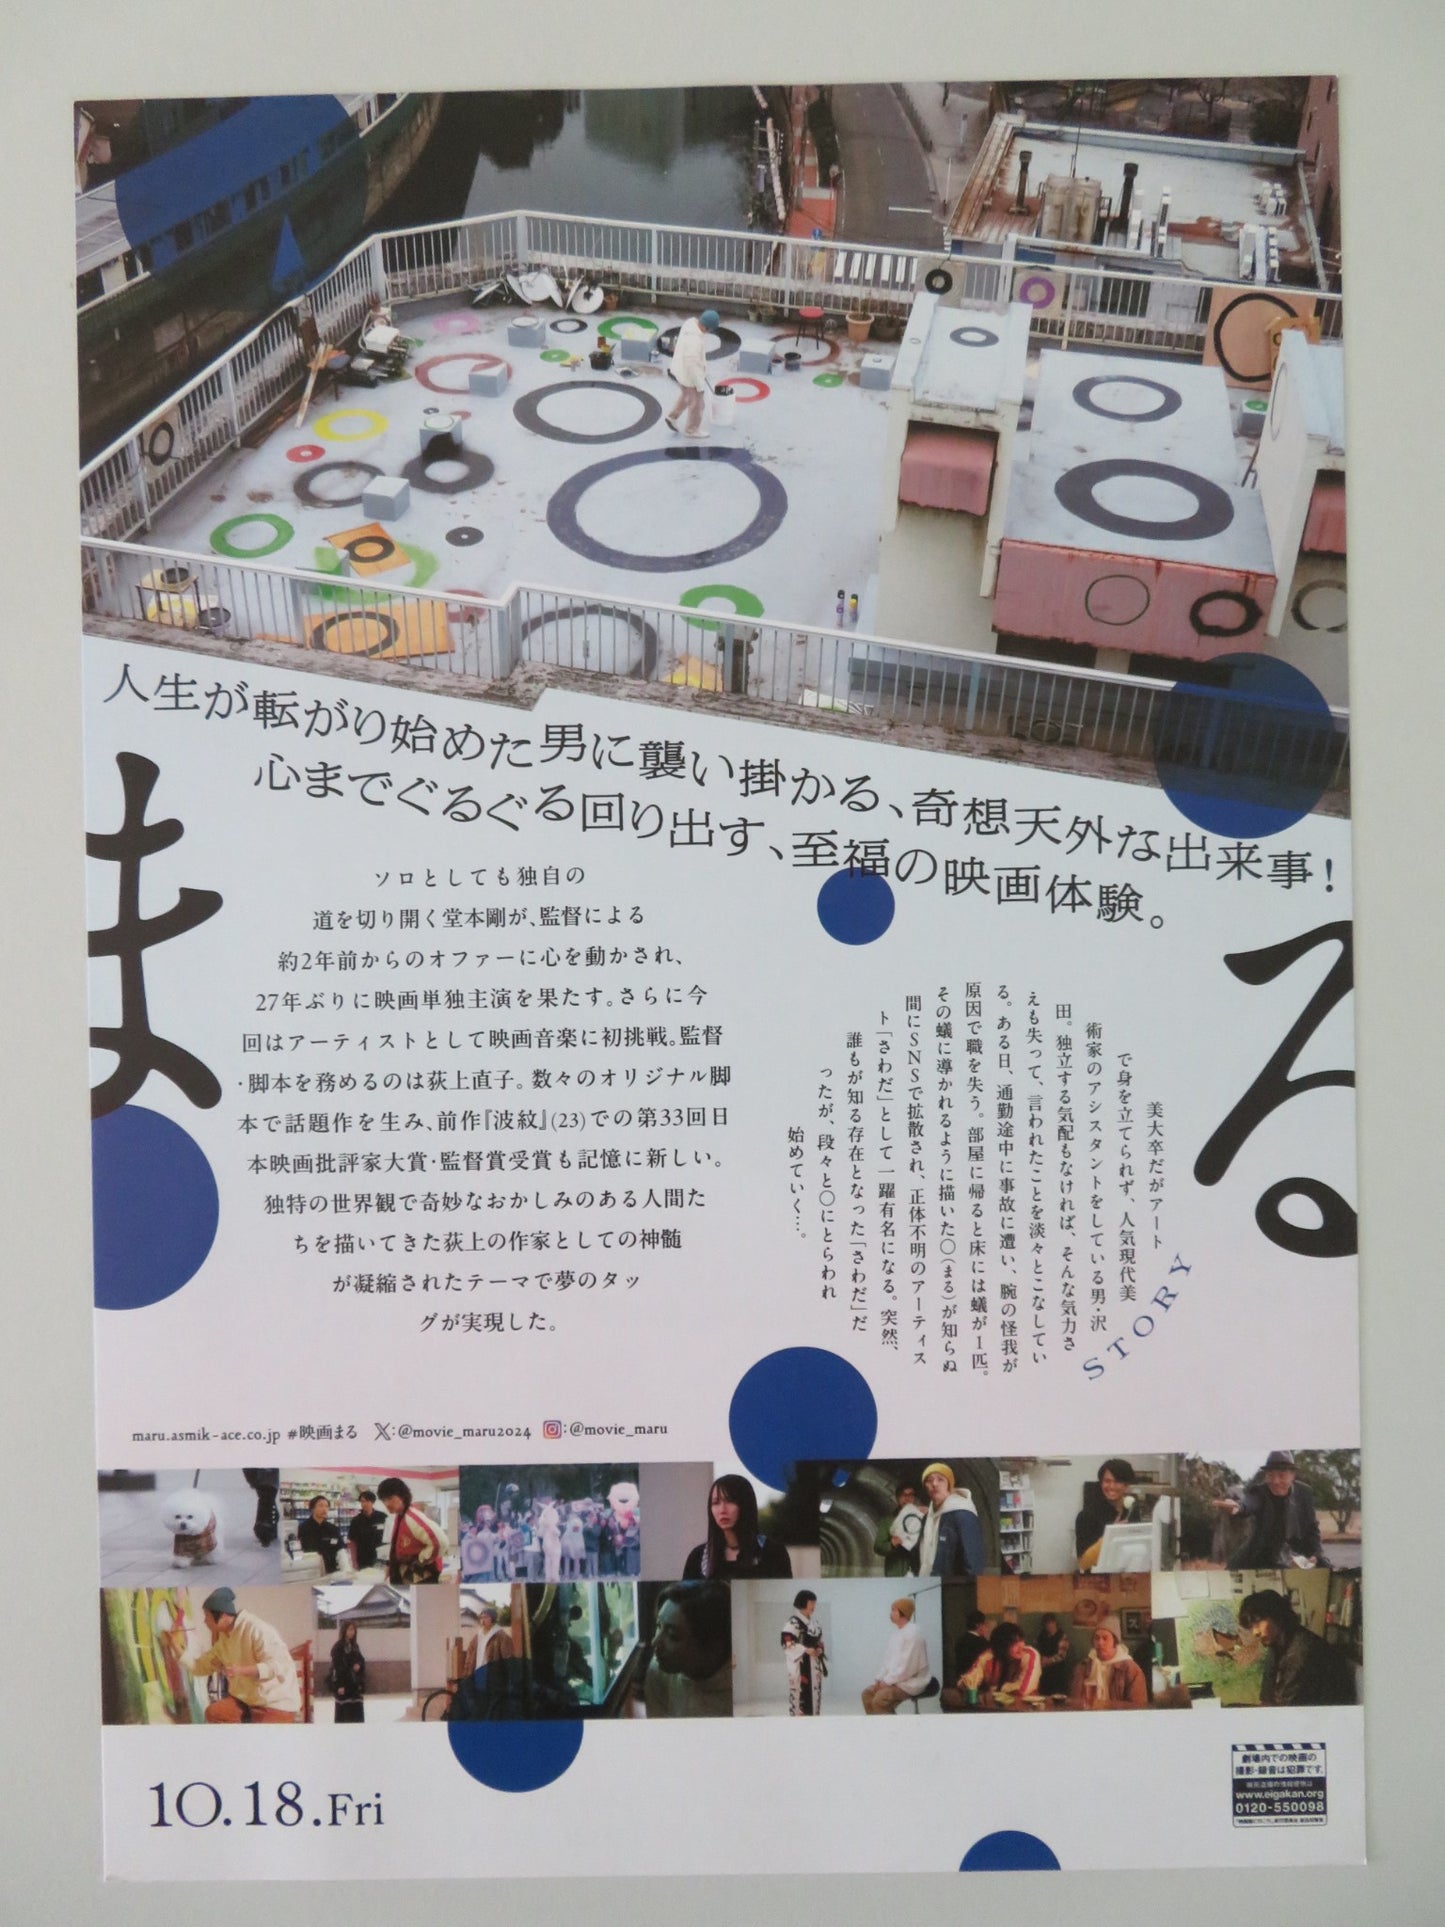 人生が転がり始めた男に襲い掛かる、奇想天外な出来事！
心までぐるぐる回り出す、至福の映画体験。
まる
ソロとしても独自の
道を切り開く堂本剛が、監督による
約2年前からのオファーに心を動かされ、
27年ぶりに映画単独主演を果たす。さらに今
回はアーティストとして映画音楽に初挑戦。監督
・脚本を務めるのは荻上直子。数々のオリジナル脚
本で話題作を生み、前作『波紋』(23)での第33回日
本映画批評家大賞・監督賞受賞も記憶に新しい。
独特の世界観で奇妙なおかしみのある人間た
ちを描いてきた荻上の作家としての神髄
が凝縮されたテーマで夢のタッ
グが実現した。
STORY
美大卒だがアート
で身を立てられず、人気現代美
術家のアシスタントをしている男・沢
田。独立する気配もなければ、そんな気力さ
えも失って、言われたことを淡々とこなしてい
る。ある日、通勤途中に事故に遭い、腕の怪我が
原因で職を失う。部屋に帰ると床には蟻が1匹。
その蟻に導かれるように描いた〇(まる)が知らぬ
間にSNSで拡散され、正体不明のアーティス
ト「さわだ」として一躍有名になる。突然、
誰もが知る存在となった「さわだ」だ
ったが、段々と〇にとらわれ
始めていく…。
maru.asmik-ace.co.jp #映画まる X:@movie_maru2024 :@movie_maru
10.18.Fri
劇場内での映画の
撮影・録音は犯罪です。
映画盗撮の情報提供は
www.eigakan.org
0120-550098